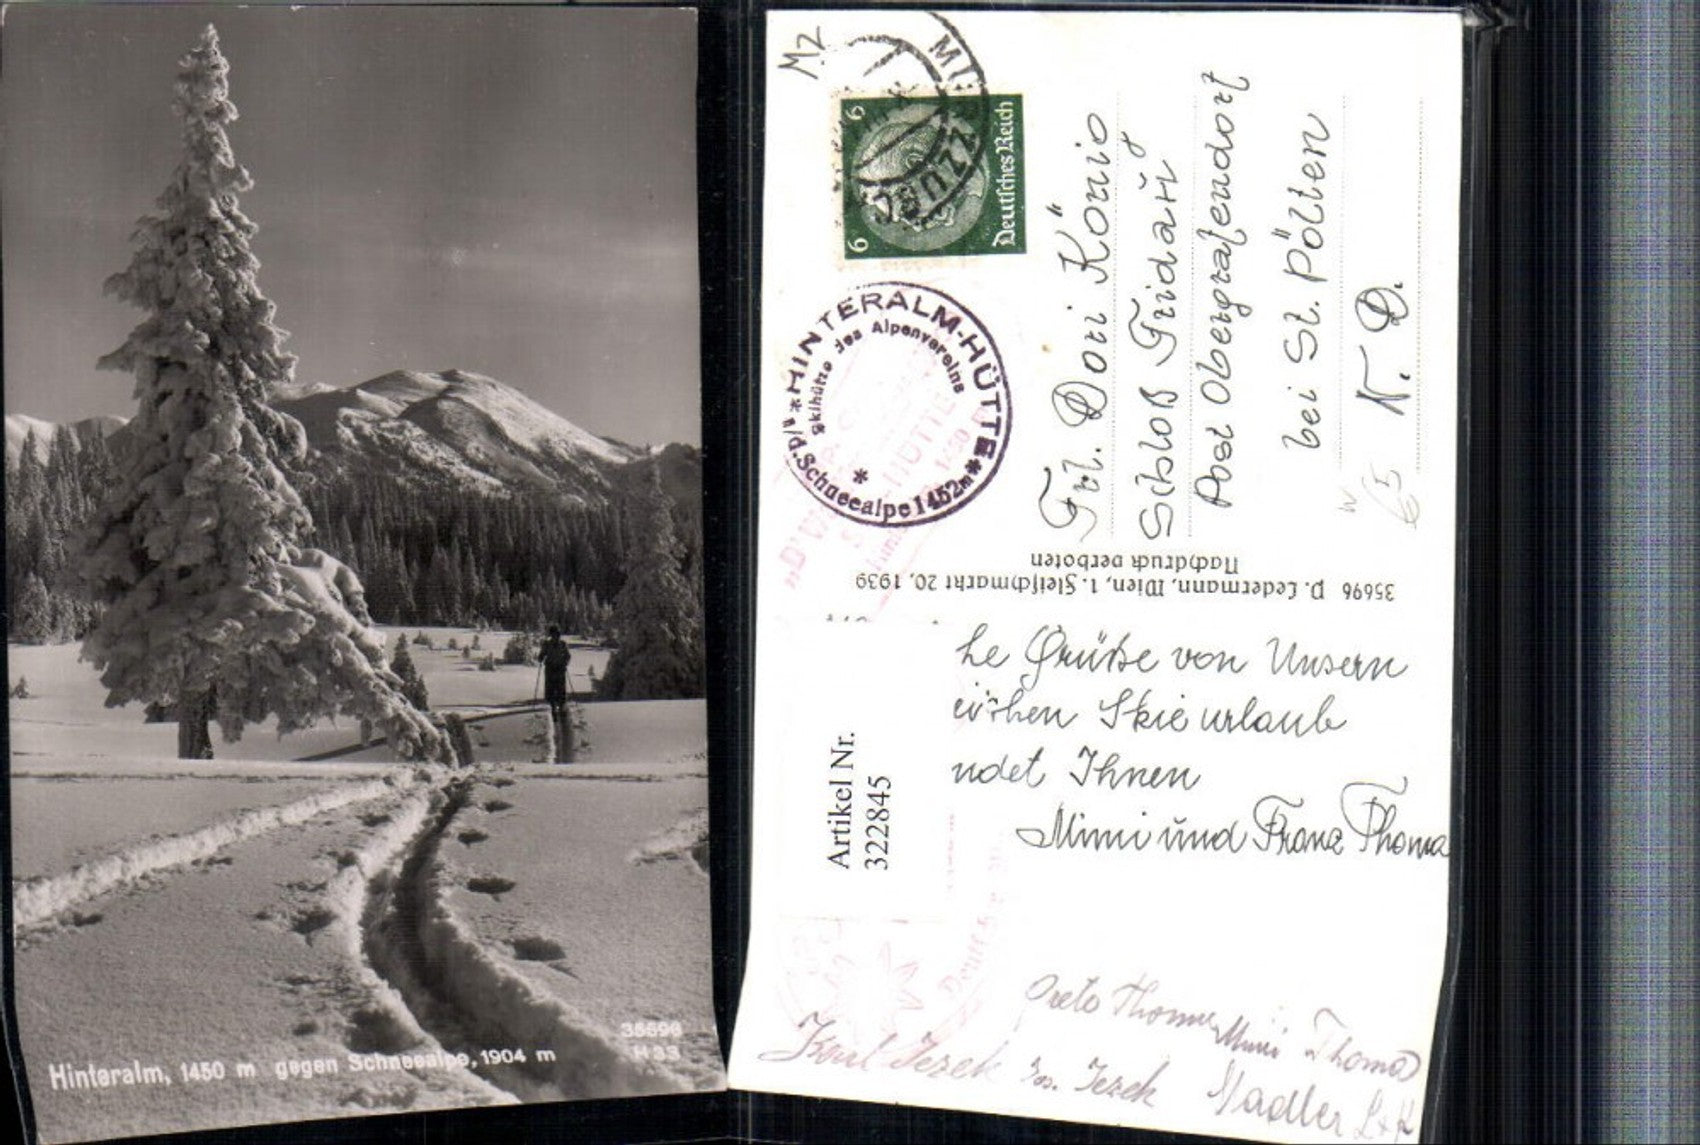 Hinteralm, 1450 m gegen Schneealpe, 1904 m
35696
H 33
M2
6 6
Deutsches Reich
MÜRZZUSC
*HINTERALM-HÜTTE*
Skihütte des Alpenvereins
p/a. Schneealpe 1452m
Frl. Dori König
Schloß Fridau
Post Obergrafendorf
bei St. Pölten
N. D.
65
35696 P. Ledermann, Wien, 1. Fleischmarkt 20, 1939
Nachdruck verboten
Artikel Nr.
322845
he Grüße von Unsern
Skie urlaub
ndet Ihnen
Mimi und Franz Thoma
Thoma Mimi Thoma
Karl Jezek Jos. Jezek Nadler